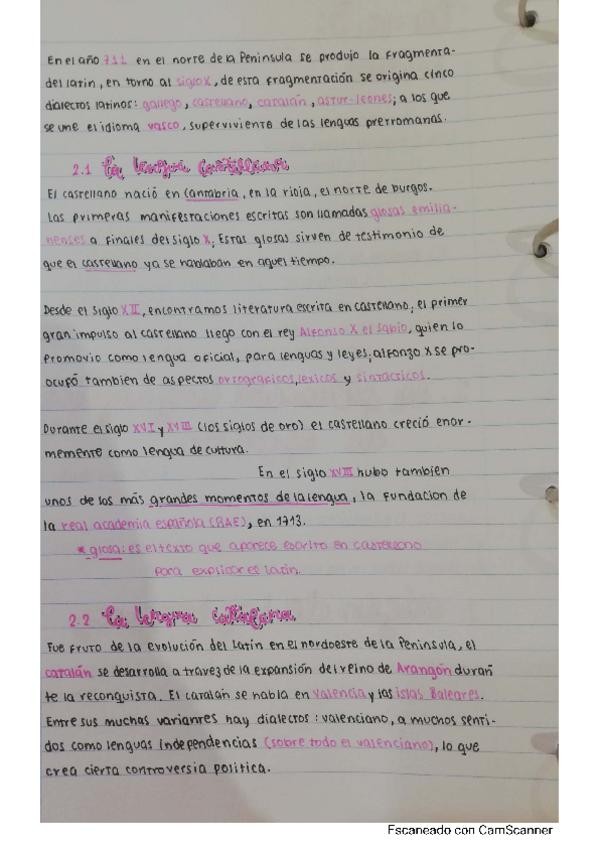 En el año 711 en el norte de la Peninsula se produjo la fragmenta-
del latin, en torno al siglo X, de esta fragmentación se origina cinco
dialectos latinos: gallego, castellano, catalán, astur-leones; a los que
se une el idioma vasco, superviviente de las lenguas prerromanas.
2.1 La lengua castellana
El castellano nació en Cantabria, en la rioja, el norte de burgos.
Las primeras manifestaciones escritas son llamadas glosas emilia-
nenses a finales del siglo X, Estas glosas sirven de testimonio de
que el castellano ya se hablaban en aquel tiempo.
Desde el siglo XII, encontramos literatura escrita en castellano, el primer
gran impulso al castellano llego con el rey Alfonso X el Sabio, quien lo
promovio como lengua oficial, para lenguas y leyes, alfonzo X se pro-
ocupó tambien de aspectos ortograficos, lexicos y sintacticos.
Durante el siglo XVI y XVIII (los siglos de oro) el castellano creció enor-
memente como lengua de cultura.
En el siglo XVIII hubo tambien
unos de los más grandes momentos de la lengua, la fundacion de
la real academia española (RAE), en 1713.
*glosa: es el texto que aparece escrito en castellano
para explicar el latin.
2.2 La lengua catalana
Fue fruto de la evolución del Latin en el nordoeste de la Peninsula, el
catalán se desarrolla a travez de la expansión del reino de Arangón duran
te la reconquista. El catalán se habla en Valencia y las islas Baleares.
Entre sus muchas variantes hay dialectos: valenciano, a muchos senti-
dos como lenguas independencias (sobre todo el valenciano), lo que
crea cierta controversia politica.
Escaneado con CamScanner